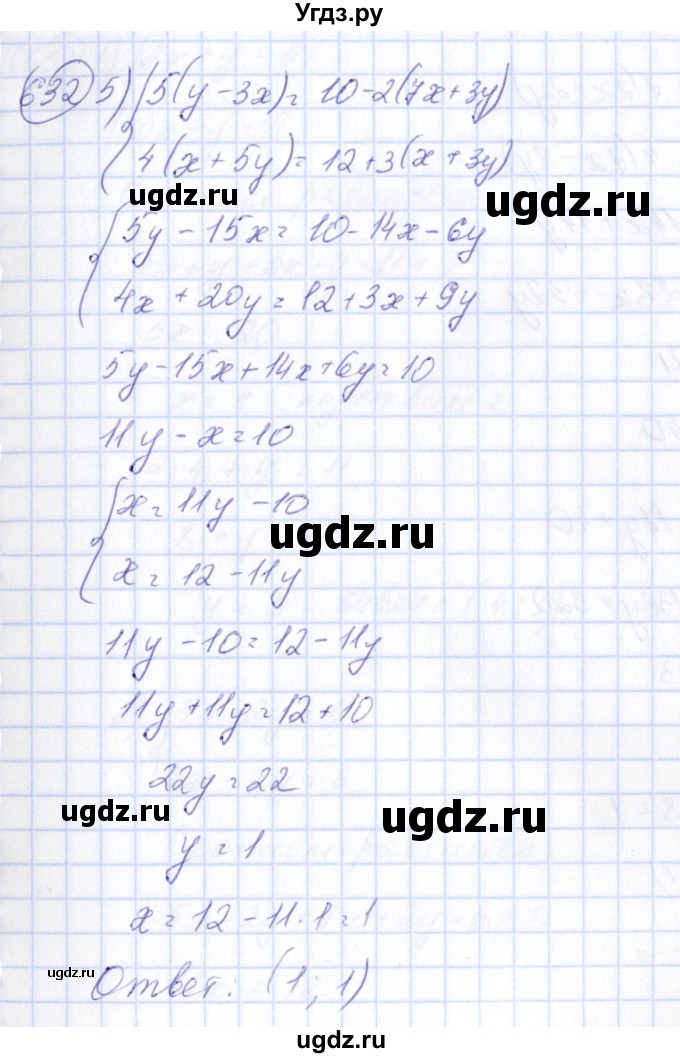 Угдз.ру
632 5) { 5(y - 3x) = 10 - 2(7x + 3y)
4(x + 5y) = 12 + 3(x + 3y)
ugdz.ru ugdz.ru
{ 5y - 15x = 10 - 14x - 6y
4x + 20y = 12 + 3x + 9y
5y - 15x + 14x + 6y = 10
11y - x = 10
{ x = 11y - 10
ugdz.ru
x = 12 - 11y
11y - 10 = 12 - 11y
11y + 11y = 12 + 10
22y = 22
ugdz.ru ugdz.ru
y = 1
x = 12 - 11 · 1 = 1
ugdz.ru
Ответ: (1; 1)
ugdz.ru